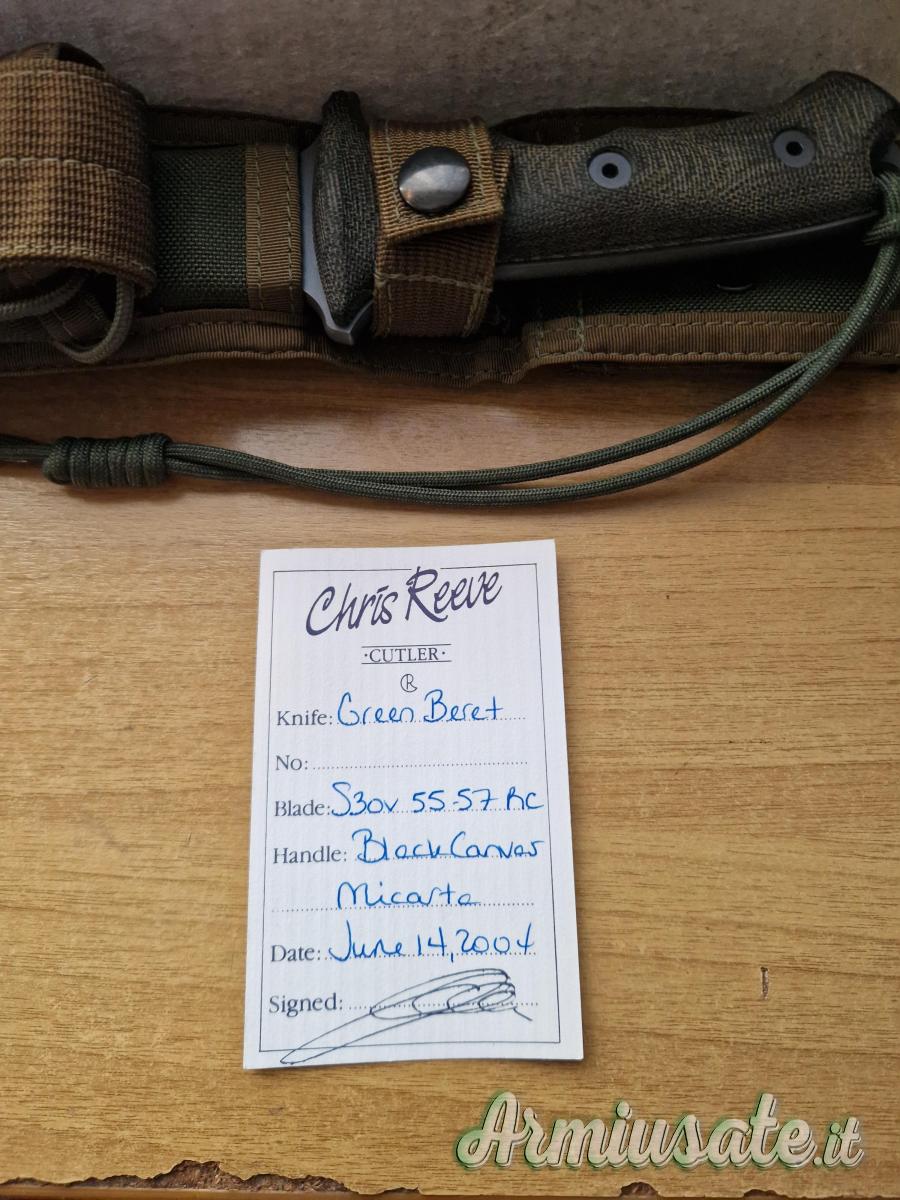 Chris Reeve
·CUTLER·
Knife: Green Beret
No:
Blade: S30V 55-57 RC
Handle: Black Canvas
Micarta
Date: June 14, 2004
Signed:
Armiusate.it